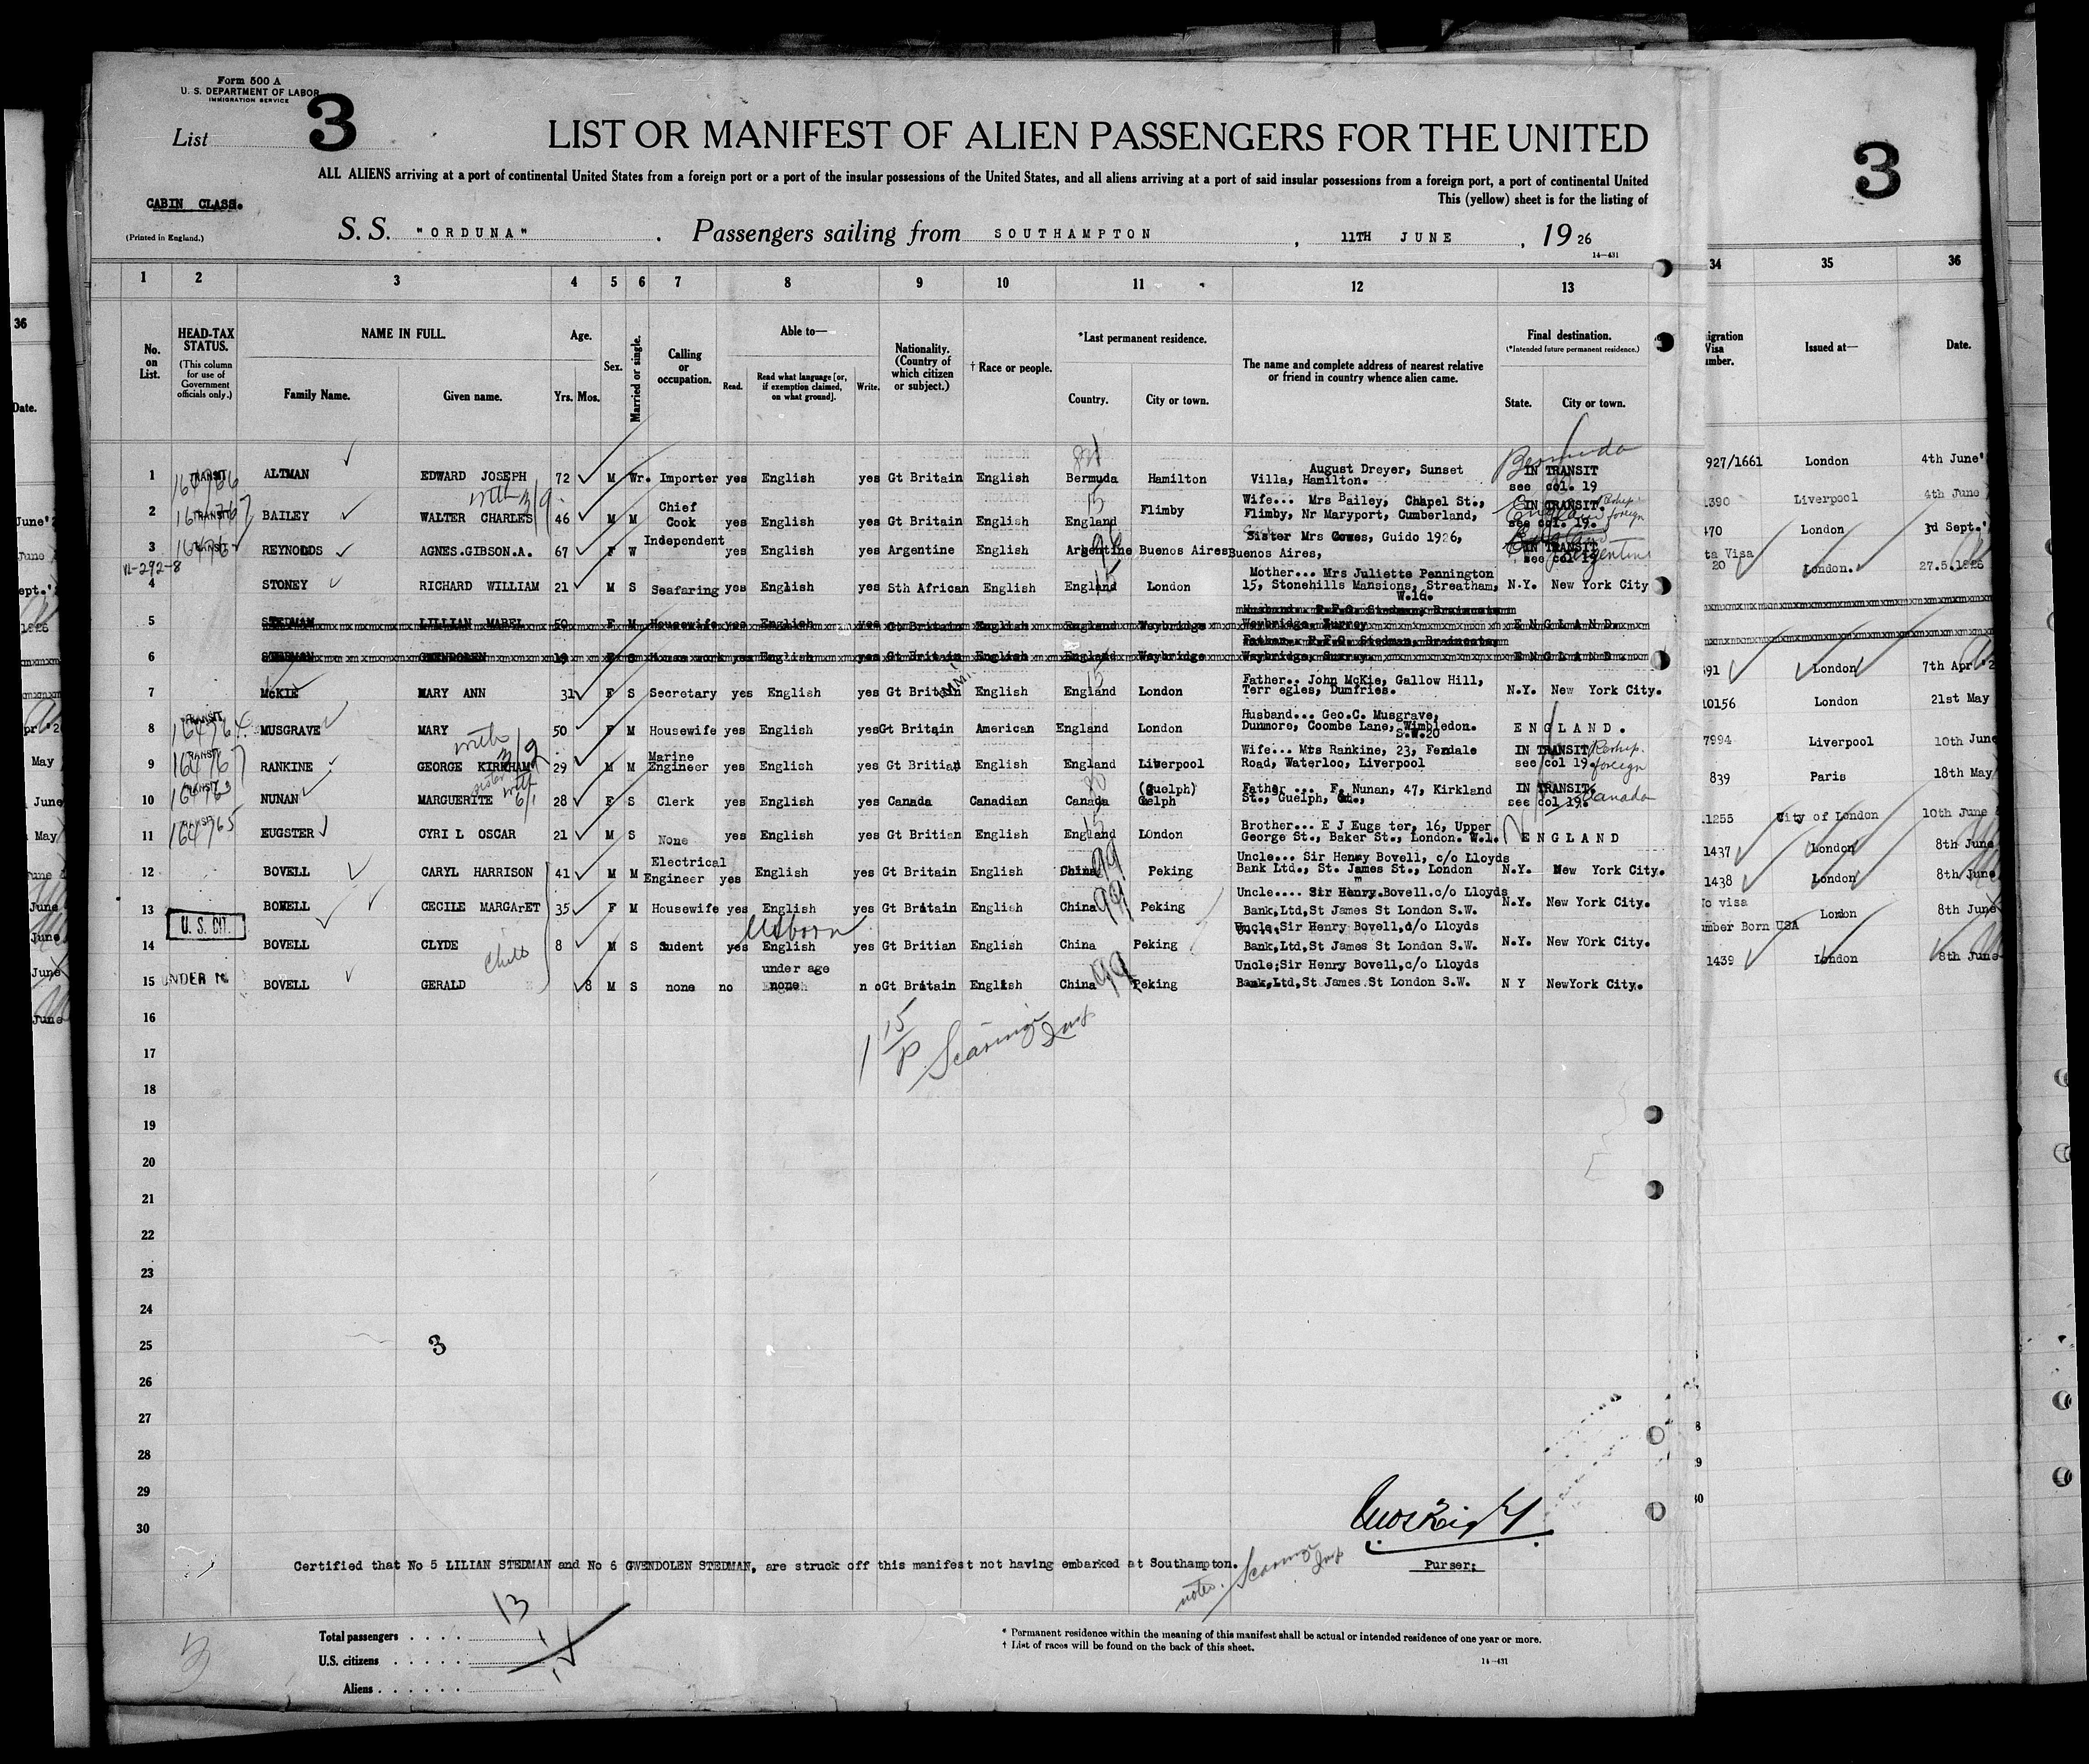 Form 500 A
U. S. DEPARTMENT OF LABOR
IMMIGRATION SERVICE
List 3
LIST OR MANIFEST OF ALIEN PASSENGERS FOR THE UNITED
3
ALL ALIENS arriving at a port of continental United States from a foreign port or a port of the insular possessions of the United States, and all aliens arriving at a port of said insular possessions from a foreign port, a port of continental United
This (yellow) sheet is for the listing of
CABIN CLASS.
(Printed in England.)
S. S. "ORDUNA" . Passengers sailing from SOUTHAMPTON , 11TH JUNE , 19 26
14—431
1 2 3 4 5 6 7 8 9 10 11 12 13 34 35 36
36
No. on List.
HEAD-TAX STATUS.
(This column for use of Government officials only.)
NAME IN FULL.
Family Name. Given name.
Age.
Yrs. Mos.
Sex.
Married or single.
Calling or occupation.
Able to—
Read. Read what language [or, if exemption claimed, on what ground]. Write.
Nationality. (Country of which citizen or subject.)
† Race or people.
*Last permanent residence.
Country. City or town.
The name and complete address of nearest relative or friend in country whence alien came.
Final destination.
(*Intended future permanent residence.)
State. City or town.
igration Visa mber.
Issued at—
Date.
Date.
1 TRANSIT ALTMAN EDWARD JOSEPH 72 M Wr. Importer yes English yes Gt Britain English Bermuda Hamilton August Dreyer, Sunset Villa, Hamilton. Bermuda IN TRANSIT see col. 19 927/1661 London 4th June'
2 TRANSIT BAILEY WALTER CHARLES with 3/9 46 M M Chief Cook yes English yes Gt Britain English England 15 Flimby Wife... Mrs Bailey, Chapel St., Flimby, Nr Maryport, Cumberland, IN TRANSIT. see col. 19. England Reship foreign 1390 Liverpool 4th June
3 REYNOLDS AGNES.GIBSON.A. 67 F W Independent yes English yes Argentine English Argentine Buenos Aires Sister Mrs Gowes, Guido 1926, Buenos Aires, IN TRANSIT see col 19 Argentine 470 London 3d Sept.'
VL-292-8
4 STONEY RICHARD WILLIAM 21 M S Seafaring yes English yes Sth African English England 15 London Mother... Mrs Juliette Pennington 15, Stonehills Mansions, Streatham, W.16. N.Y. New York City ta Visa 20 London. 27.5.1926
5 STEDMAN LILLIAN MABEL 50 F M Housewife yes English yes Gt Britain English England Weybridge Husband. R.F.G. Stedman, Braincote, Weybridge, Surrey ENGLAND.
6 STEDMAN GWENDOLEN 19 F S House work yes English yes Gt Britain English England Weybridge Father. R.F.G. Stedman, Braincote, Weybridge, Surrey. ENGLAND
7 McKIE MARY ANN 31 F S Secretary yes English yes Gt Britain English England 15 London Father.. John McKie, Gallow Hill, Terr egles, Dumfries. N.Y. New York City. 91 London 7th Apr '2
8 TRANSIT 164764 MUSGRAVE MARY 50 F M Housewife yes English yes Gt Britain American England London Husband... Geo.C. Musgrave, Dunmore, Coombe Lane, Wimbledon. S.W.20 ENGLAND. 10156 London 21st May
9 TRANSIT 164767 RANKINE GEORGE KIRKHAM with 3/2 29 M M Marine Engineer yes English yes Gt Britian English England Liverpool Wife... Mrs Rankine, 23, Ferndale Road, Waterloo, Liverpool IN TRANSIT see col 19. Reship. foreign 7994 Liverpool 10th June
10 TRANSIT 164763 NUNAN MARGUERITE sister with 6/1 28 F S Clerk yes English yes Canada Canadian Canada (Guelph) Guelph Father ... F. Nunan, 47, Kirkland St., Guelph, Ont., IN TRANSIT. see col 19. Canada 839 Paris 18th May
11 TRANSIT 164765 EUGSTER CYRI L OSCAR 21 M S None yes English yes Gt Britian English England 15 London Brother... E J Eugs ter, 16, Upper George St., Baker St., London. W.1. ENGLAND 1255 City of London 10th June
12 BOVELL CARYL HARRISON 41 M M Electrical Engineer yes English yes Gt Britain English China 99 Peking Uncle... Sir Henry Bovell, c/o Lloyds Bank Ltd., St. James St., London N.Y. New York City. 1437 London 8th June
13 BOVELL CECILE MARGArET 35 F M Housewife yes English yes Gt Britain English China 99 Peking Uncle.... Sir Henry.Bovell.c/o Lloyds Bank,Ltd,St James St London S.W. N.Y. New York City. 1438 London 8th June
14 U. S. CIT. BOVELL CLYDE Child 8 M S Sudent yes English US born yes Gt Britian English China Peking Uncle,Sir Henry Bovell,c/o Lloyds Bank,Ltd,St James St London S.W. N.Y. New YOrk City. No visa mber Born USA London 8th June
15 UNDER 16 BOVELL GERALD 8 M S none no under age none n o Gt Britain English China 99 Peking Uncle;Sir Henry Bovell,c/o Lloyds Bank,Ltd,St James.St London S.W. N Y NewYork City. 1439 London 8th June
16
17
18
19
20
21
22
23
24
25
3
26
27
28
29
30
Certified that No 5 LILIAN STEDMAN and No 6 GWENDOLEN STEDMAN, are struck off this manifest not having embarked at Southampton.
Purser;
Total passengers . . . . 13
U.S. citizens . . . . . .
Aliens . . . . . . . .
* Permanent residence within the meaning of this manifest shall be actual or intended residence of one year or more.
† List of races will be found on the back of this sheet.
14—431